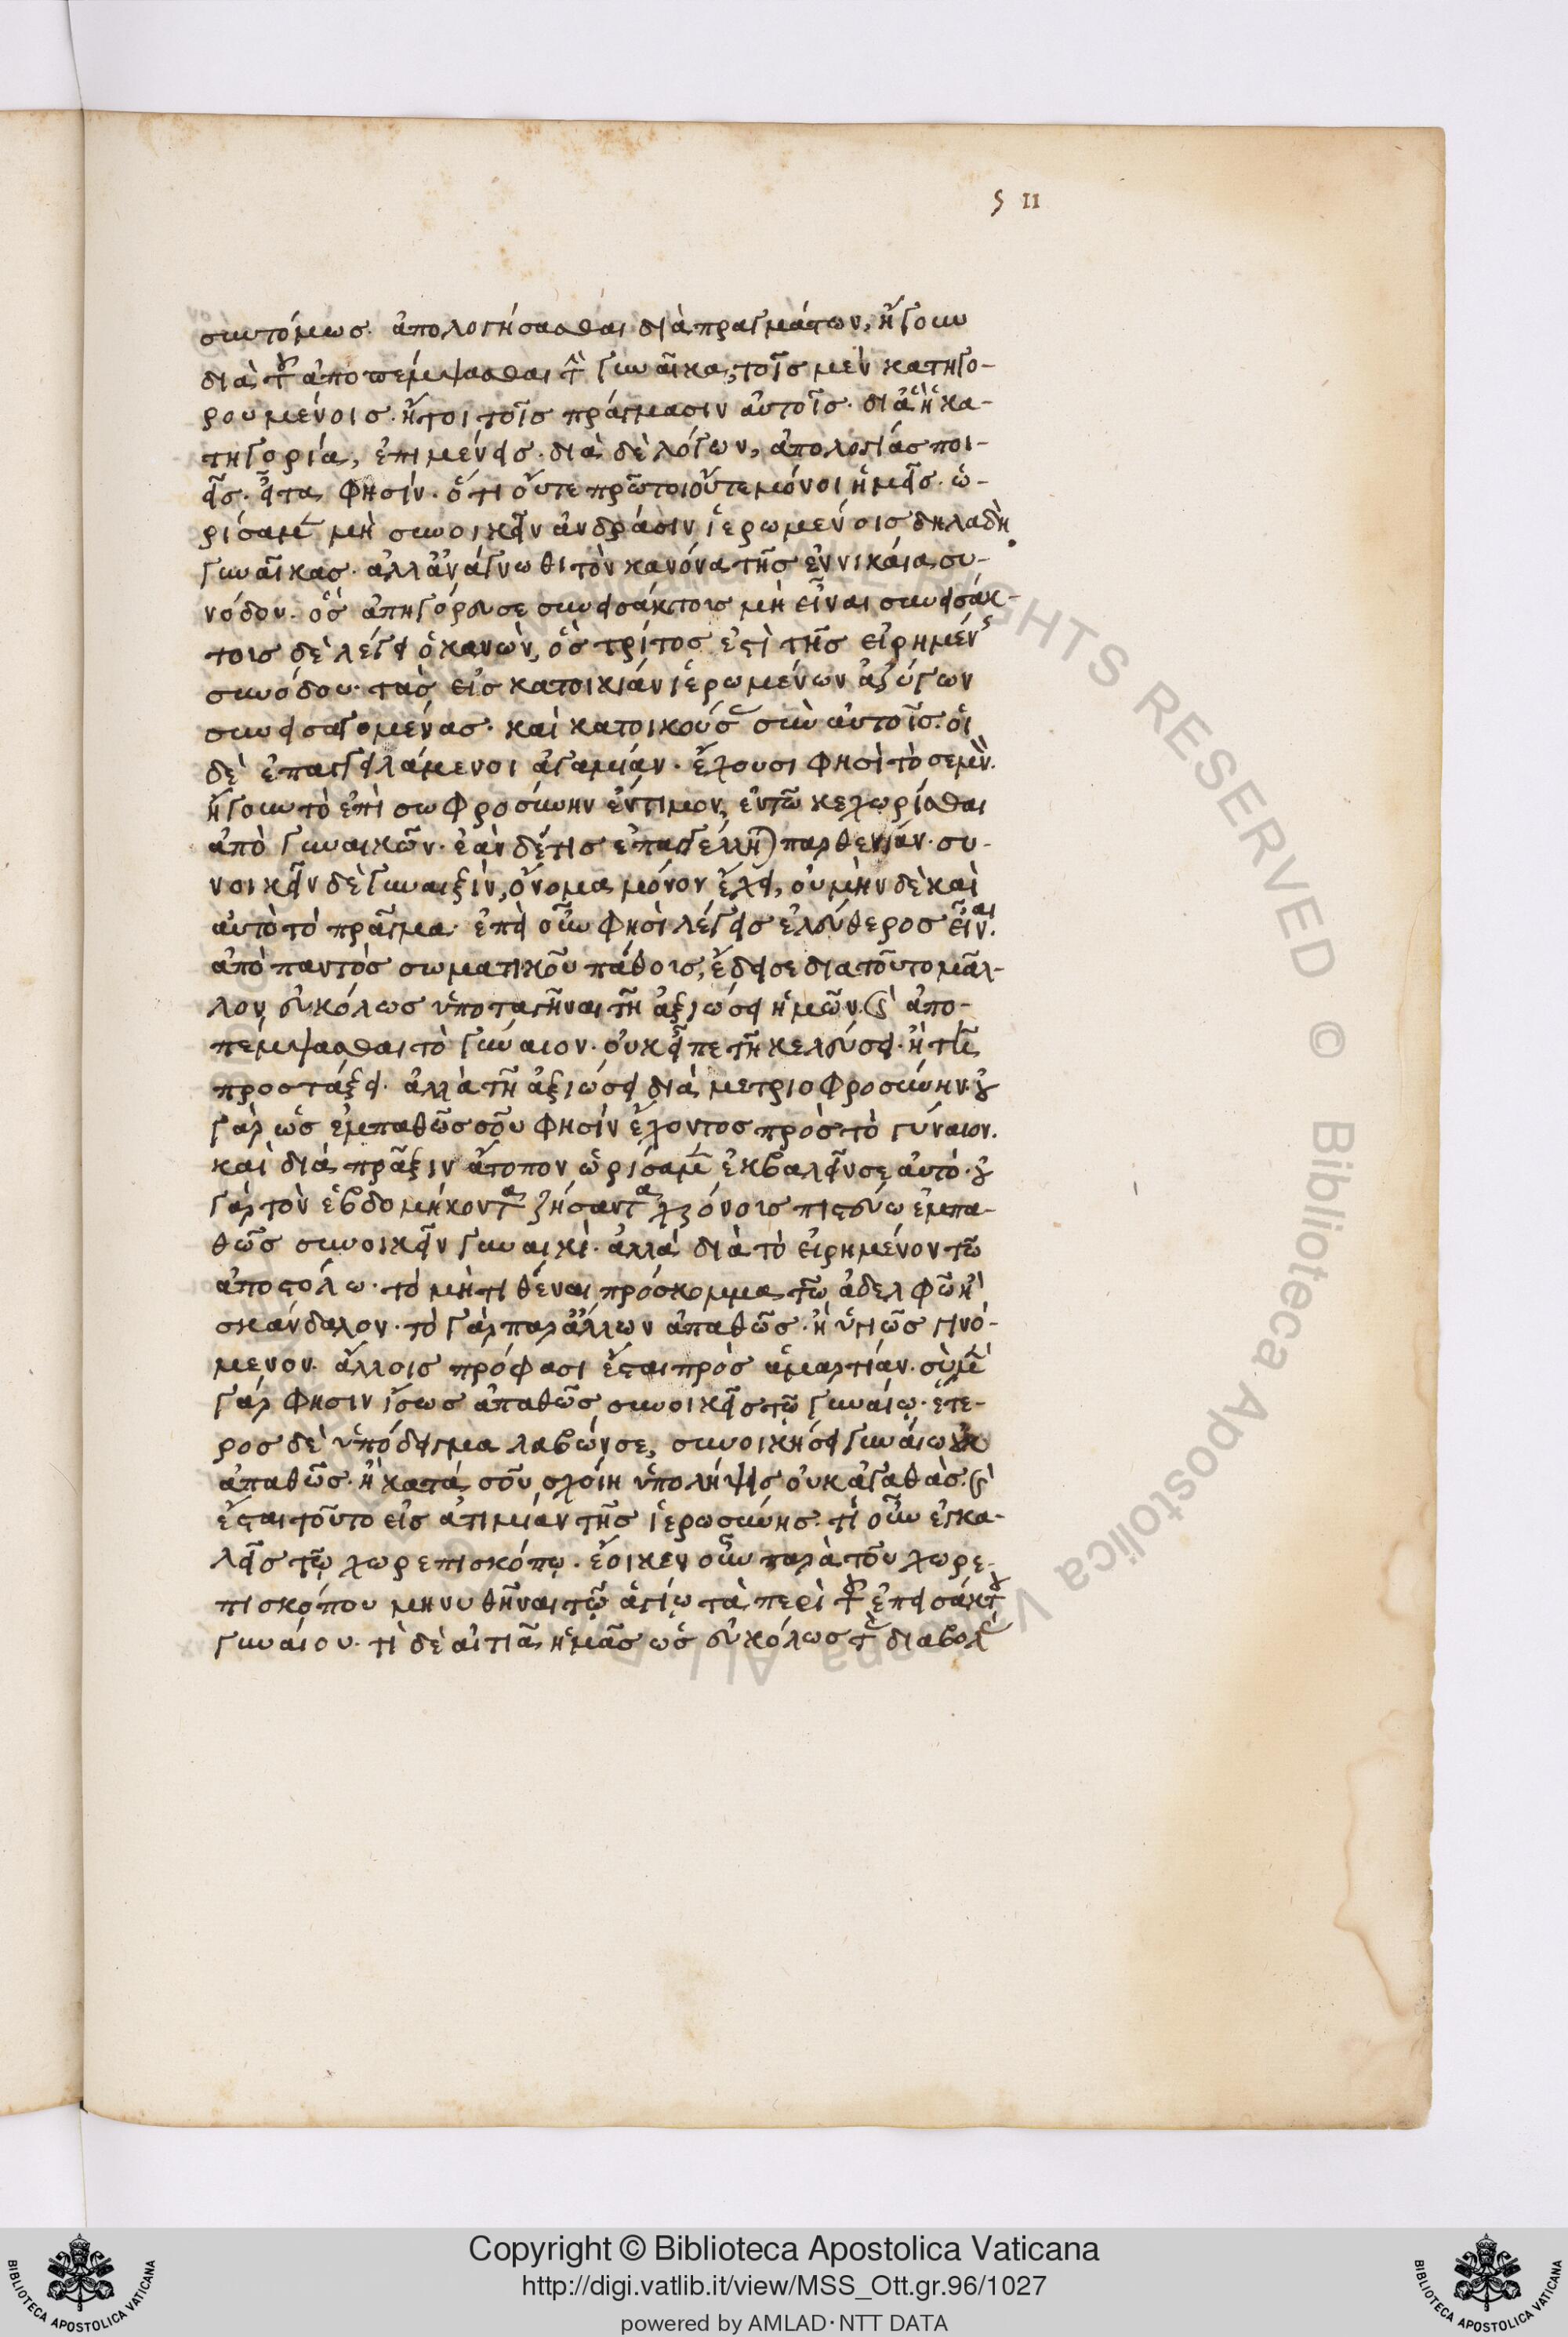 511
συντόμως. ἀπολογήσασθαι διὰ πραγμάτων, ἤγουν
διὰ τοῦ ἀποπέμψασθαι τὴν γυναῖκα, τοῖς μὲν κατηγο-
ρουμένοις. ἤτοι τοῖς πράγμασιν αὐτοῖς. δι ἃ ἡ κα-
τηγορία, ἐπιμένεις. διὰ δὲ λόγων, ἀπολογίας ποι-
εῖς. εἶτα φησίν. ὅτι οὔτε πρῶτοι οὔτε μόνοι ἡμεῖς. ὡ-
ρίσαμεν μὴ συνοικεῖν ἀνδράσιν ἱερωμένοις δηλαδὴ
γυναῖκας. ἀλλ ἀνάγνωθι τὸν κανόνα τῆς ἐν νικαία συ-
νόδου. ὃς ἀπηγόρευσε συνεισάκτους μὴ εἶναι συνεισάκ-
τους δὲ λέγει ὁ κανὼν, ὃς τρίτος ἐστὶ τῆς εἰρημένης
συνόδου. τὰς εἰς κατοικίαν ἱερωμένων ἀζύγων
συνεισαγομένας. καὶ κατοικούσας σὺν αὐτοῖς. οἱ
δὲ ἐπαγγειλάμενοι ἀγαμίαν. ἔχουσι φησὶ τὸ σεμνὸν.
ἤγουν τὸ ἐπὶ σωφροσύνην ἔντιμον, ἐν τῶ κεχωρίσθαι
ἀπὸ γυναικῶν. ἐὰν δέ τις ἐπαγγέλληται παρθενίαν. συ-
νοικεῖν δὲ γυναιξὶν, ὄνομα μόνον ἔχει, οὐ μὴν δὲ καὶ
αὐτὸ τὸ πρᾶγμα. ἐπεὶ οὖν φησὶ λέγεις ἐλεύθερος εἶναι.
ἀπὸ παντὸς σωματικοῦ πάθους, ἔδει σε δια τοῦτο μᾶλ-
λον, εὐκόλως ὑποταγῆναι τῆ ἀξιώσει ἡμῶν. καὶ ἀπο-
πεμψασθαι τὸ γύναιον. οὐκ εἶπε τῆ κελεύσει. ἢ τῆ
προστάξει. ἀλλὰ τῆ ἀξιώσει διὰ μετριοφροσύνην. οὐ
γὰρ ὡς ἐμπαθῶς σοῦ φησίν ἔχοντος πρὸς τὸ γύναιον.
καὶ διὰ πρᾶξιν ἄτοπον ὡρίσαμεν ἐκβαλεῖν σε αὐτό. οὐ
γὰρ τὸν ἑβδομήκοντα ζήσαντα χρόνους πιστεύω ἐμπα-
θῶς συνοικεῖν γυναικὶ. ἀλλὰ διὰ τὸ εἰρημένον τῶ
ἀποστόλω. τὸ μὴ τιθέναι πρόσκομμα τῶ ἀδελφῶ ἢ
σκάνδαλον. τὸ γὰρ παρ ἄλλων ἀπαθῶς. ἢ ὑγιῶς γινό-
μενον. ἄλλοις πρόφασι ἔσται πρὸς ἁμαρτίαν. σὺ μὲν
γάρ φησιν ἴσως ἀπαθῶς συνοικεῖς τῶ γυναίῳ. ἕτε-
ρος δὲ ὑπόδειγμα λαβών σε, συνοικήσει γυναίω οὐκ
ἀπαθῶς. ἢ κατά σοῦ σχοίη ὑπολήψεις οὐκ ἀγαθὰς. καὶ
ἔσται τοῦτο εἰς ἀτιμίαν τῆς ἱερωσύνης. τί οὖν ἐγκα-
λεῖς τῷ χωρεπισκόπῳ. ἔοικεν οὖν παρὰ τοῦ χωρε-
πισκόπου μηνυθῆναι τῷ ἁγίῳ τὰ περὶ τοῦ ἐπεισάκτου
γυναίου. τί δὲ αἰτιᾶ ἡμᾶς ὡς εὐκόλως τὰς διαβολὰς
Copyright © Biblioteca Apostolica Vaticana
http://digi.vatlib.it/view/MSS_Ott.gr.96/1027
powered by AMLAD·NTT DATA
BIBLIOTECA APOSTOLICA VATICANA
BIBLIOTECA APOSTOLICA VATICANA